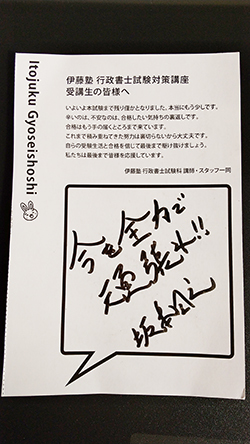 Itojuku Gyoseishoshi
伊藤塾 行政書士試験対策講座
受講生の皆様へ
いよいよ本試験まで残り僅かとなりました。本当にもう少しです。
辛いのは、不安なのは、合格したい気持ちの裏返しです。
合格はもう手の届くところまで来ています。
これまで積み重ねてきた努力は裏切らないから大丈夫です。
自らの受験生活と合格を信じて最後まで駆け抜けましょう。
私たちは最後まで皆様を応援しています。
伊藤塾 行政書士試験科 講師・スタッフ一同
今を全力で
頑張れ!!